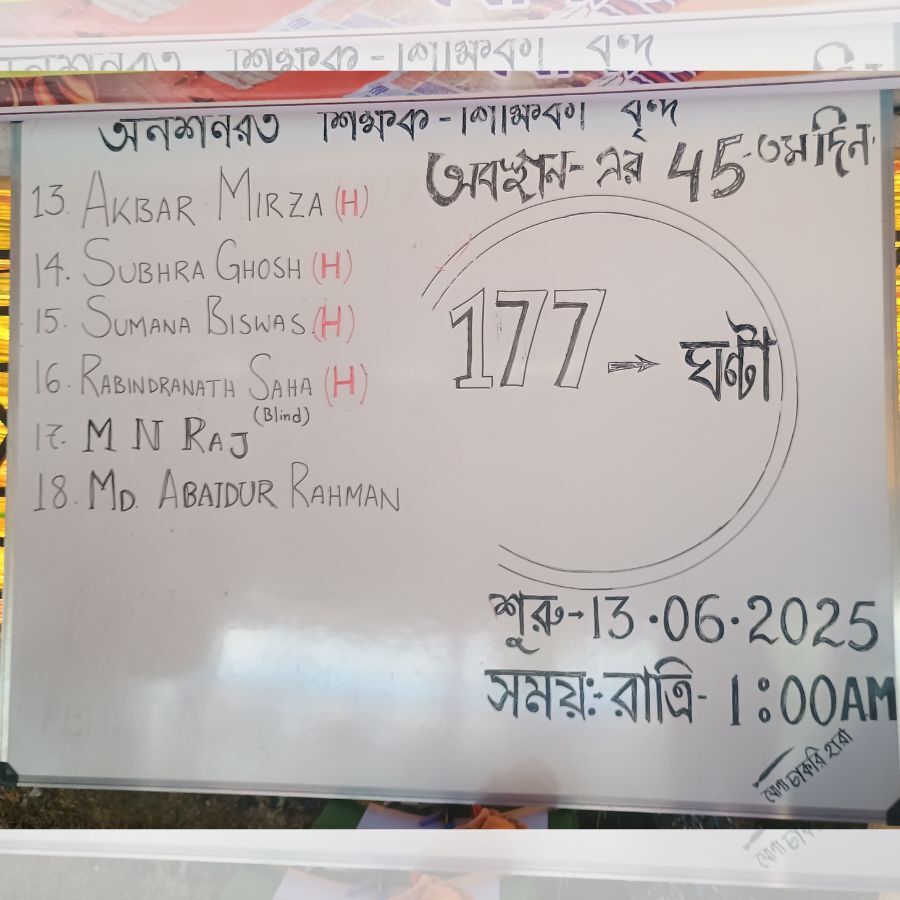 অনশনরত শিক্ষক-শিক্ষিকা বৃন্দ
অবস্থান-এর 45-তম দিন
13. AKBAR MIRZA (H)
14. SUBHRA GHOSH (H)
15. SUMANA BISWAS (H)
16. RABINDRANATH SAHA (H)
(Blind)
17. M N RAJ
18. MD. ABAIDUR RAHMAN
177 → ঘণ্টা
শুরু-13.06.2025
সময়:-রাত্রি- 1:00AM
যোগ্য চাকরি হারা